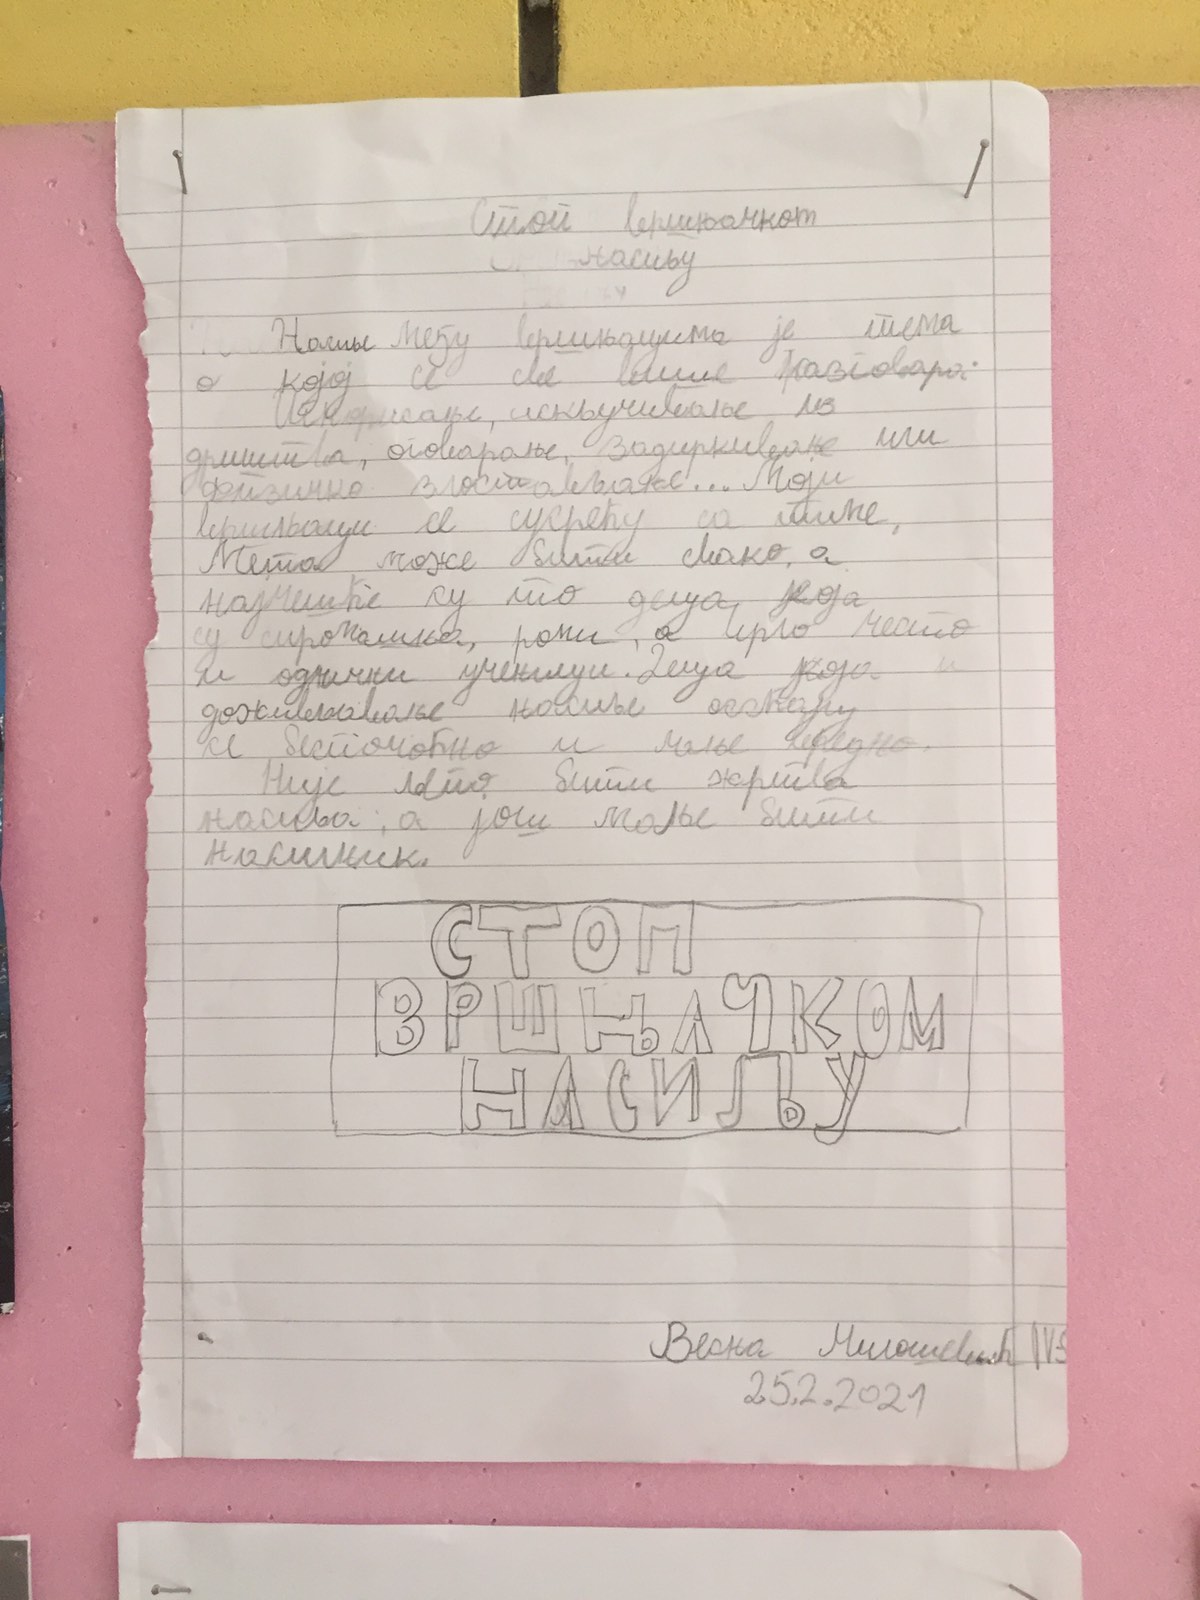 Стоп вршњачком
насиљу
Насиље међу вршњацима је тема
о којој се све више разговара.
искључивање из
друштва, оговарање, задиркивање или
физичко злостављање... Моји
вршњаци се сусрећу са тиме,
Мета може бити свако, а
најчешће су то деца која
су сиромашна, роми, а врло често
и одлични ученици. Деца која
доживљавање насиље осећају
се беспомоћно и мање вредно.
Није лепо бити жртва
насиља, а још мање бити
насилник.
СТОП
ВРШЊАЧКОМ
НАСИЉУ
Весна Милошевић IV3
25.2.2021